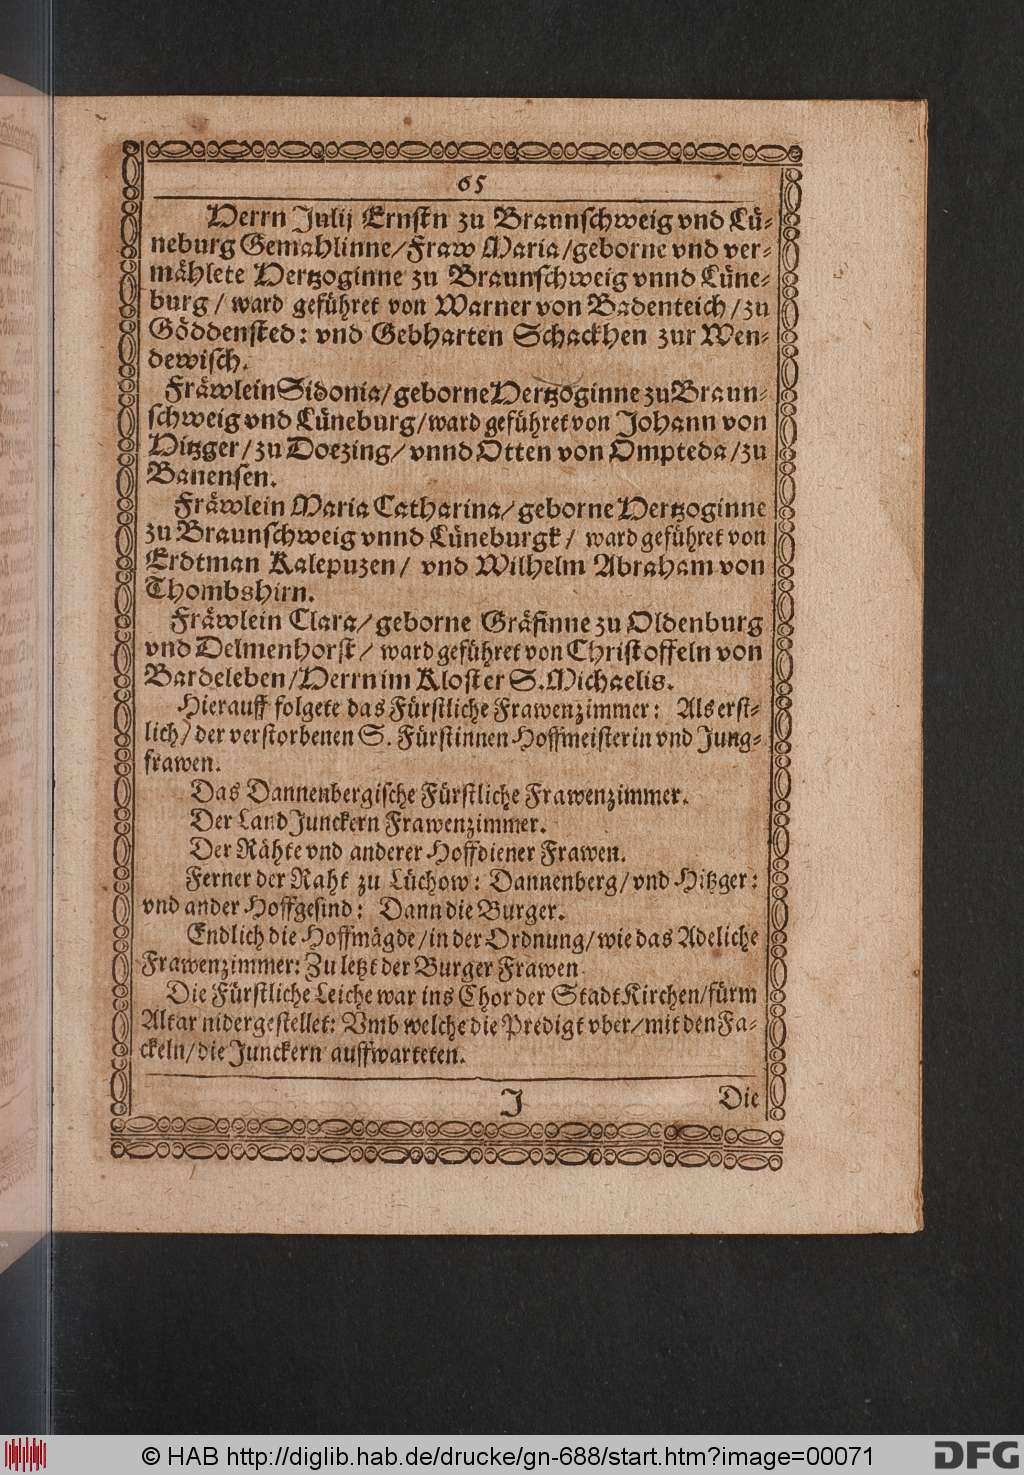 65
Herrn Julij Ernstn zu Braunschweig vnd Lü-
neburg Gemahlinne/Fraw Maria/geborne vnd ver-
mählete Hertzoginne zu Braunschweig vnnd Lüne-
burg/ ward geführet von Warner von Badenteich/zu
Göddensted: vnd Gebharten Schackhen zur Wen-
dewisch.
Fräwlein Sidonia/geborne Hertzoginne zu Braun-
schweig vnd Lüneburg/ward geführet von Johann von
Hitzger/zu Doezing/vnnd Otten von Ompteda/zu
Banensen.
Fräwlein Maria Catharina/geborne Hertzoginne
zu Braunschweig vnnd Lüneburgk/ ward geführet von
Erdtman Kalepuzen/ vnd Wilhelm Abraham von
Thombshirn.
Fräwlein Clara/geborne Gräfinne zu Oldenburg
vnd Delmenhorst/ ward geführet von Christoffeln von
Bardeleben/Herrn im Kloster S. Michaelis.
Hierauff folgete das Fürstliche Frawenzimmer: Als erst-
lich/der verstorbenen S. Fürstinnen Hoffmeisterin vnd Jung-
frawen.
Das Dannenbergische Fürstliche Frawenzimmer.
Der Land Junckern Frawenzimmer.
Der Rähte vnd anderer Hoffdiener Frawen.
Ferner der Raht zu Lüchow: Dannenberg/vnd Hitzger:
vnd ander Hoffgesind: Dann die Burger.
Endlich die Hoffmägde/in der Ordnung/wie das Adeliche
Frawenzimmer: Zu letzt der Burger Frawen.
Die Fürstliche Leiche war ins Chor der Stadt Kirchen/fürm
Altar nidergestellet: Vmb welche die Predigt vber/mit den Fa-
ckeln/die Junckern auffwarteten.
J Die
© HAB http://diglib.hab.de/drucke/gn-688/start.htm?image=00071
DFG